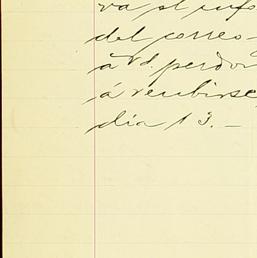 va si info
del correo-
à Vd. perdon
á recibirse
día 13. _